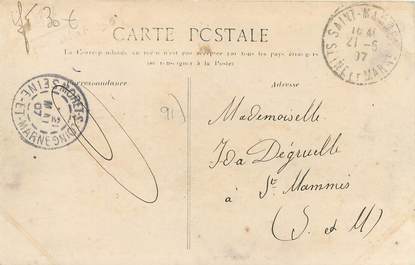 30 €
CARTE POSTALE
La Correspondance au recto n'est pas acceptée par tous les pays étrangers
se renseigner à la Poste
Correspondance
Adresse
SAINT-MAMMES
21 -5
07
SEINE ET MARNE
MORET-S-LOING
21
MAI
07
SEINE-ET-MARNE
91)
Mademoiselle
Ida Dégruelle
à St. Mammès
(S. et M)